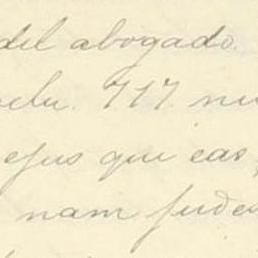 del abogado.
717. nu
ejus que eas
nam fudes